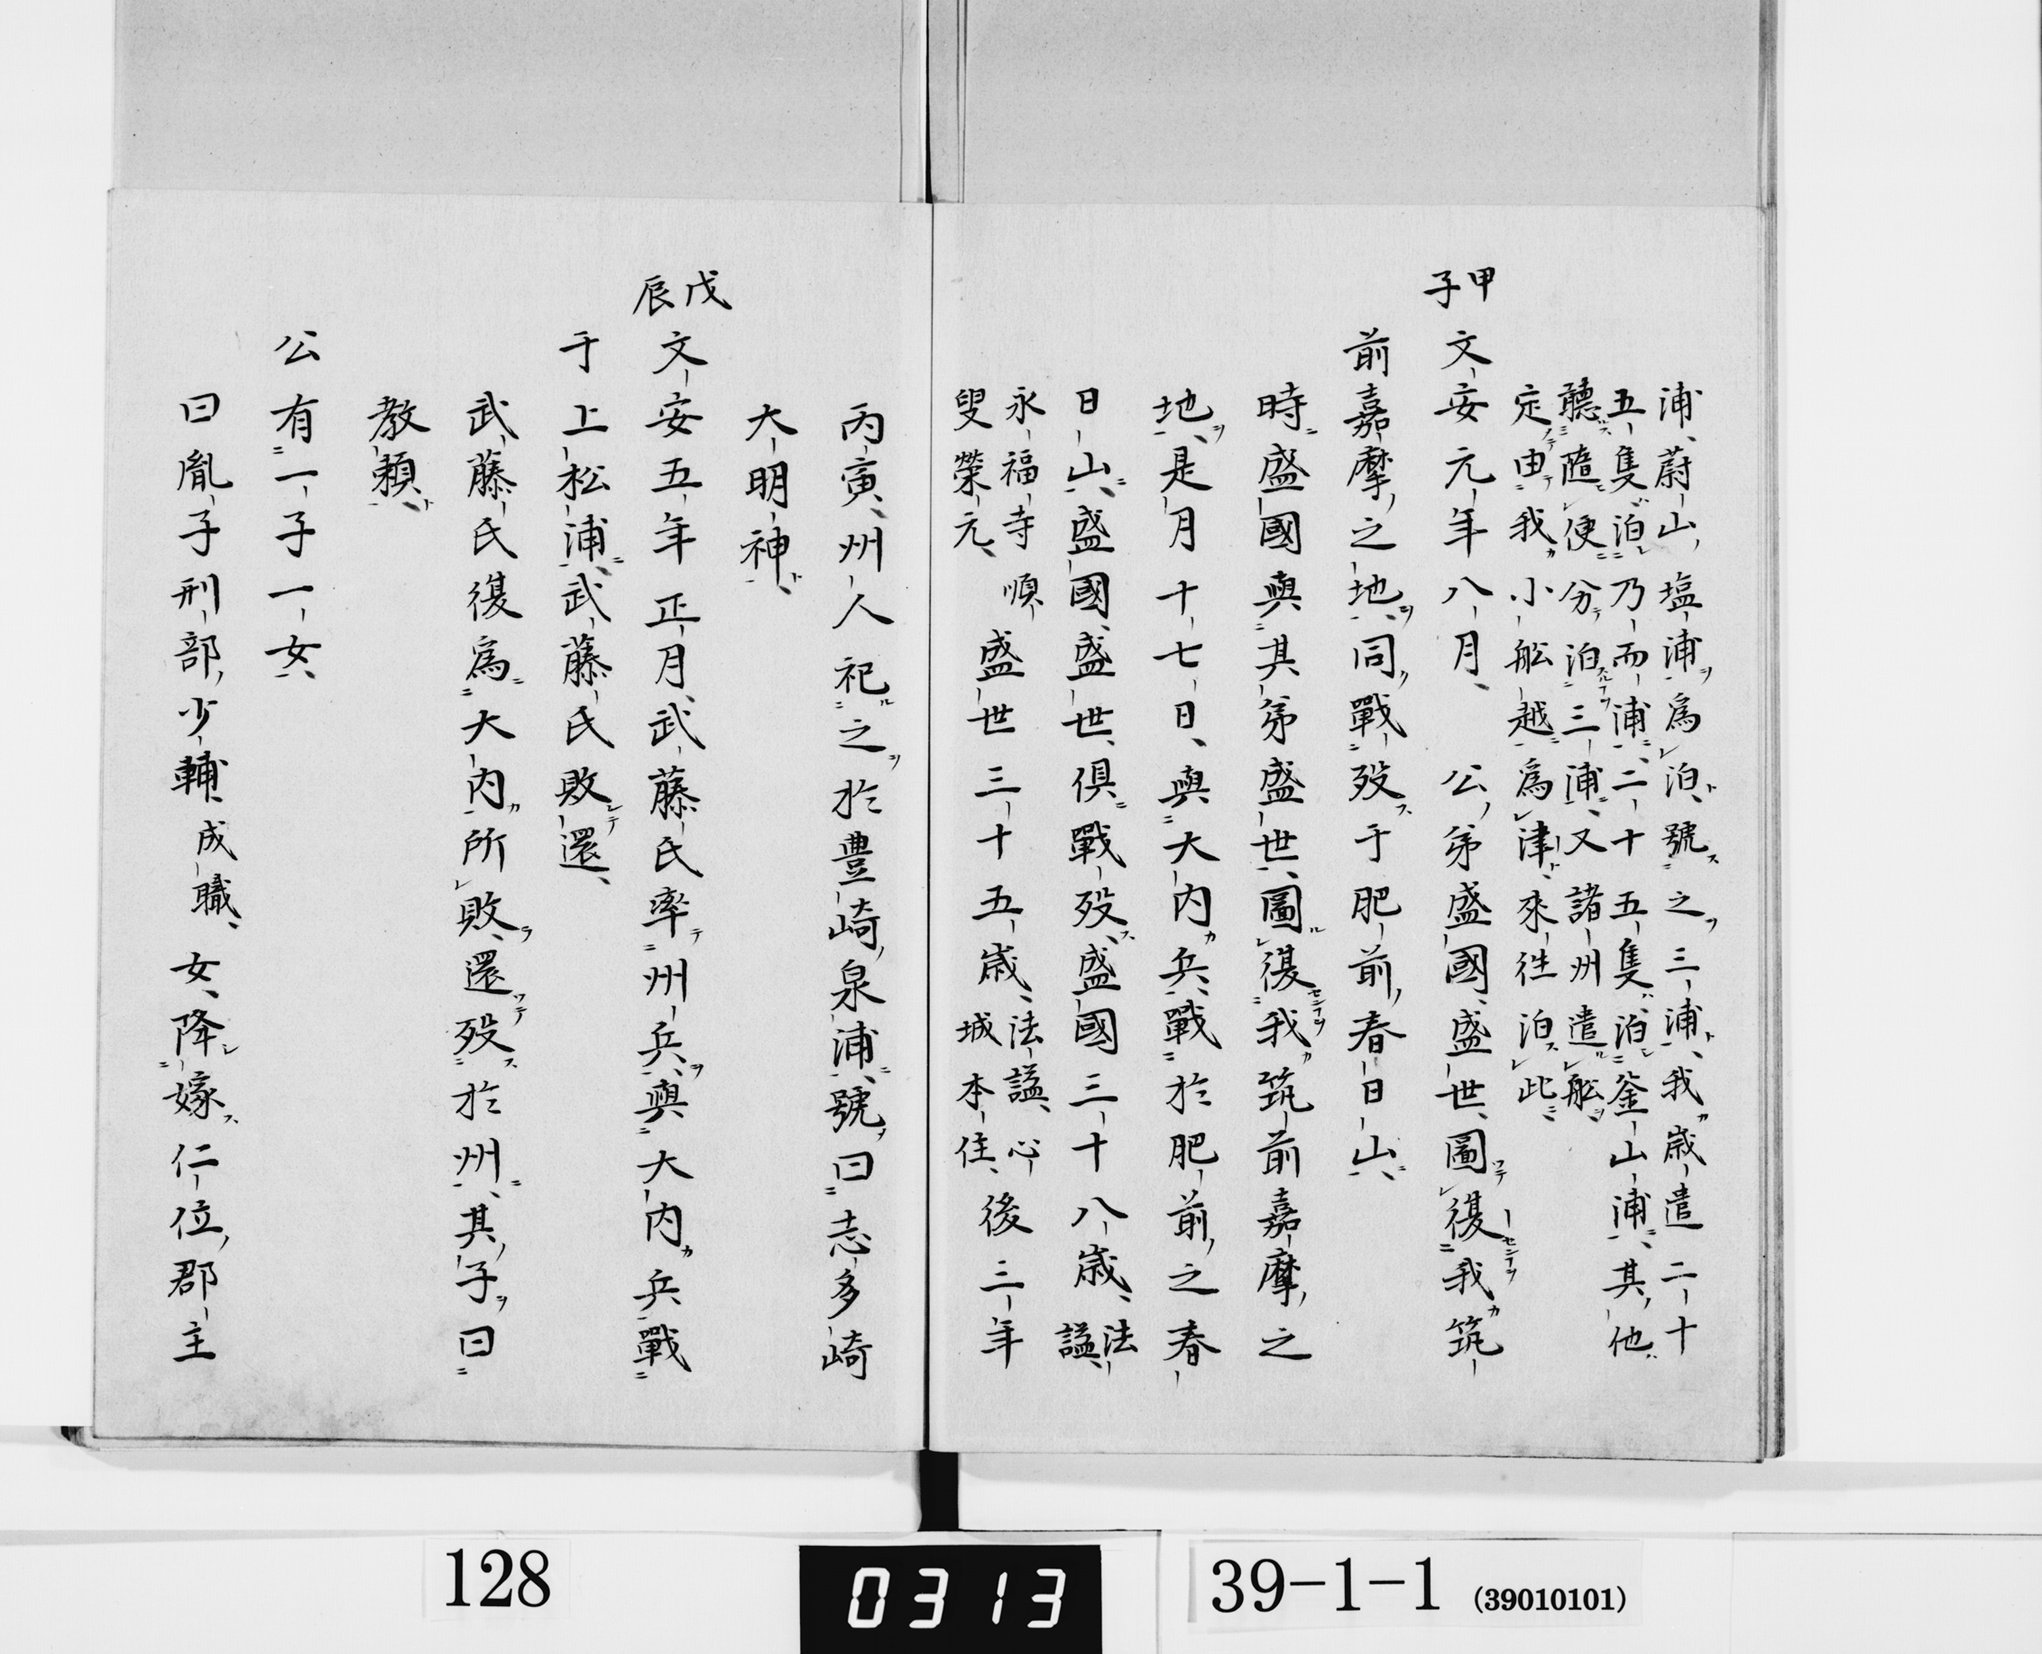 浦蔚山塩浦為泊號之三浦我歳遣二十
五隻泊乃而浦二十五隻泊釜山浦其他
聽隨便分泊三浦又諸州遣舩
定由我小舩越為津來徃泊此
甲子
文安元年八月　公弟盛國盛世圖復我筑
前嘉摩之地同戰歿于肥前春日山
時盛國與其弟盛世圖復我筑前嘉摩之
地是月十七日與大内兵戰於肥前之春
日山盛國盛世倶戰歿盛國三十八歳法諡
永福寺順叟榮元盛世三十五歳法諡心城本住後三年
丙寅州人祀之於豊崎泉浦號曰志多崎
大明神
戊辰
文安五年正月武藤氏率州兵與大内兵戰
于上松浦武藤氏敗還
武藤氏復為大内所敗還歿於州其子曰
教頼
公有一子一女
曰胤子刑部少輔成職女降嫁仁位郡主
128
0313
39-1-1 (39010101)